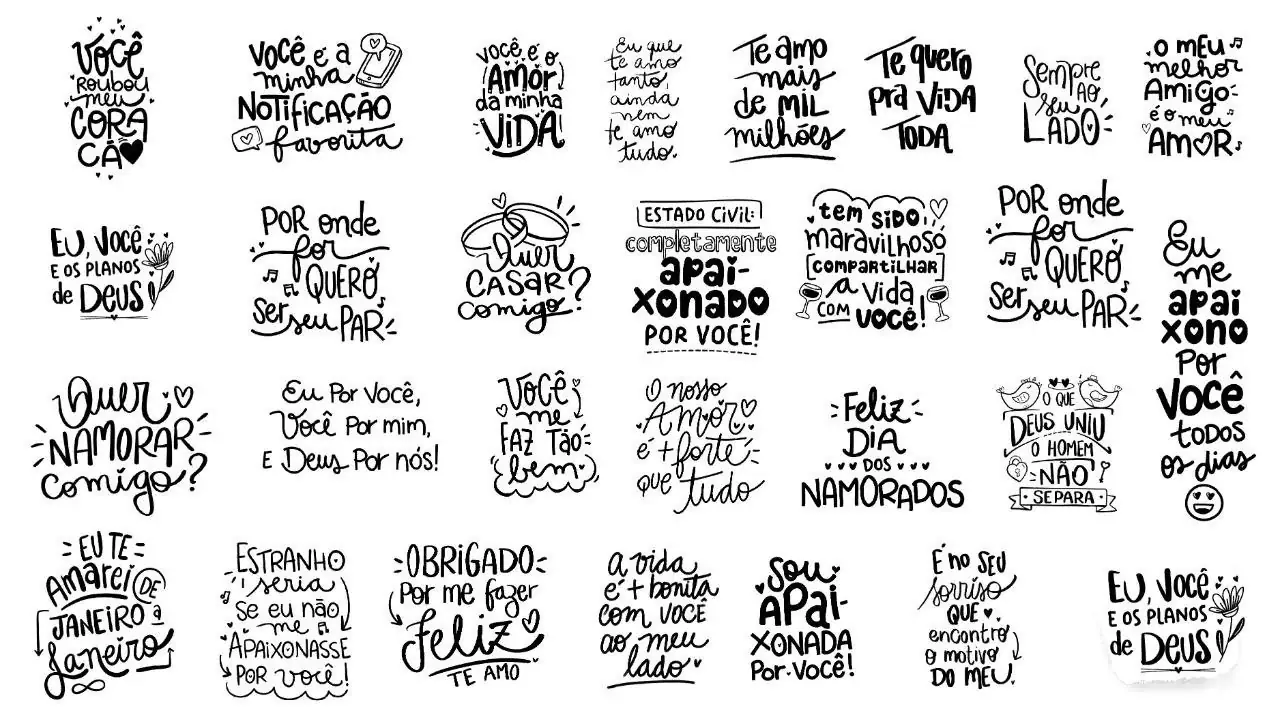 Você
ROUBOU
meu
CORA
ÇÃ
Você é a
minha
NOTIFICAÇÃO
favorita
você é o
Amor
da minha
VIDA!
Eu que
te amo
tanto,
ainda
nem
te amo
tudo.
Te amo
mais
de MIL
milhões
Te quero
pra VIDA
TODA
Sempre
AO
seu
LADO
O MEU
melhor
AMIGO
é o meu
AMOR
EU, VOCÊ
E OS PLANOS
de DEUS
POR onde
for
QUERO
ser seu PAR
Quer
CASAR
comigo?
ESTADO CIVIL:
completamente
apai-
xonado
POR VOCÊ!
tem SIDO
maravilhoso
COMPARTILHAR
a Vida
COM VOCÊ!
POR onde
for
QUERO
ser seu PAR
Eu
me
apai
xono
Por
Você
todos
os dias
Quer
NAMORAR
comigo?
Eu Por Você,
Você Por mim,
E Deus Por nós!
Você
me
FAZ TÃO
bem
O nosso
Amor
é + forte
que tudo
Feliz
DIA
DOS
NAMORADOS
O QUE
DEUS UNIU
O HOMEM
NÃO
SEPARA
EU TE
Amarei DE
JANEIRO a
Janeiro
ESTRANHO
seria
se eu não
me
APAIXONASSE
POR você!
OBRIGADO
Por me fazer
Feliz
TE AMO
a vida
é + bonita
com VOCÊ
ao meu
lado
SOU
APAI-
XONADA
Por Você!
É no SEU
sorriso
QUE
encontro
O motivo
DO MEU.
EU, VOCÊ
E OS PLANOS
de DEUS